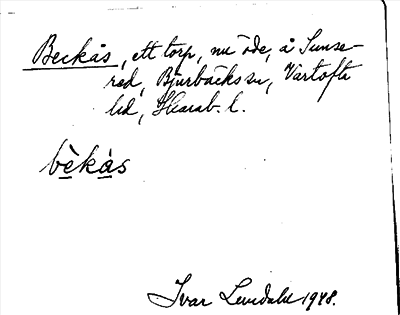 Beckås, ett torp, nu öde, å Sunse-
red, Bjurbäcks sn, Vartofta
hd, Skarab. l.
bèkàs
Ivar Lundahl 1948.